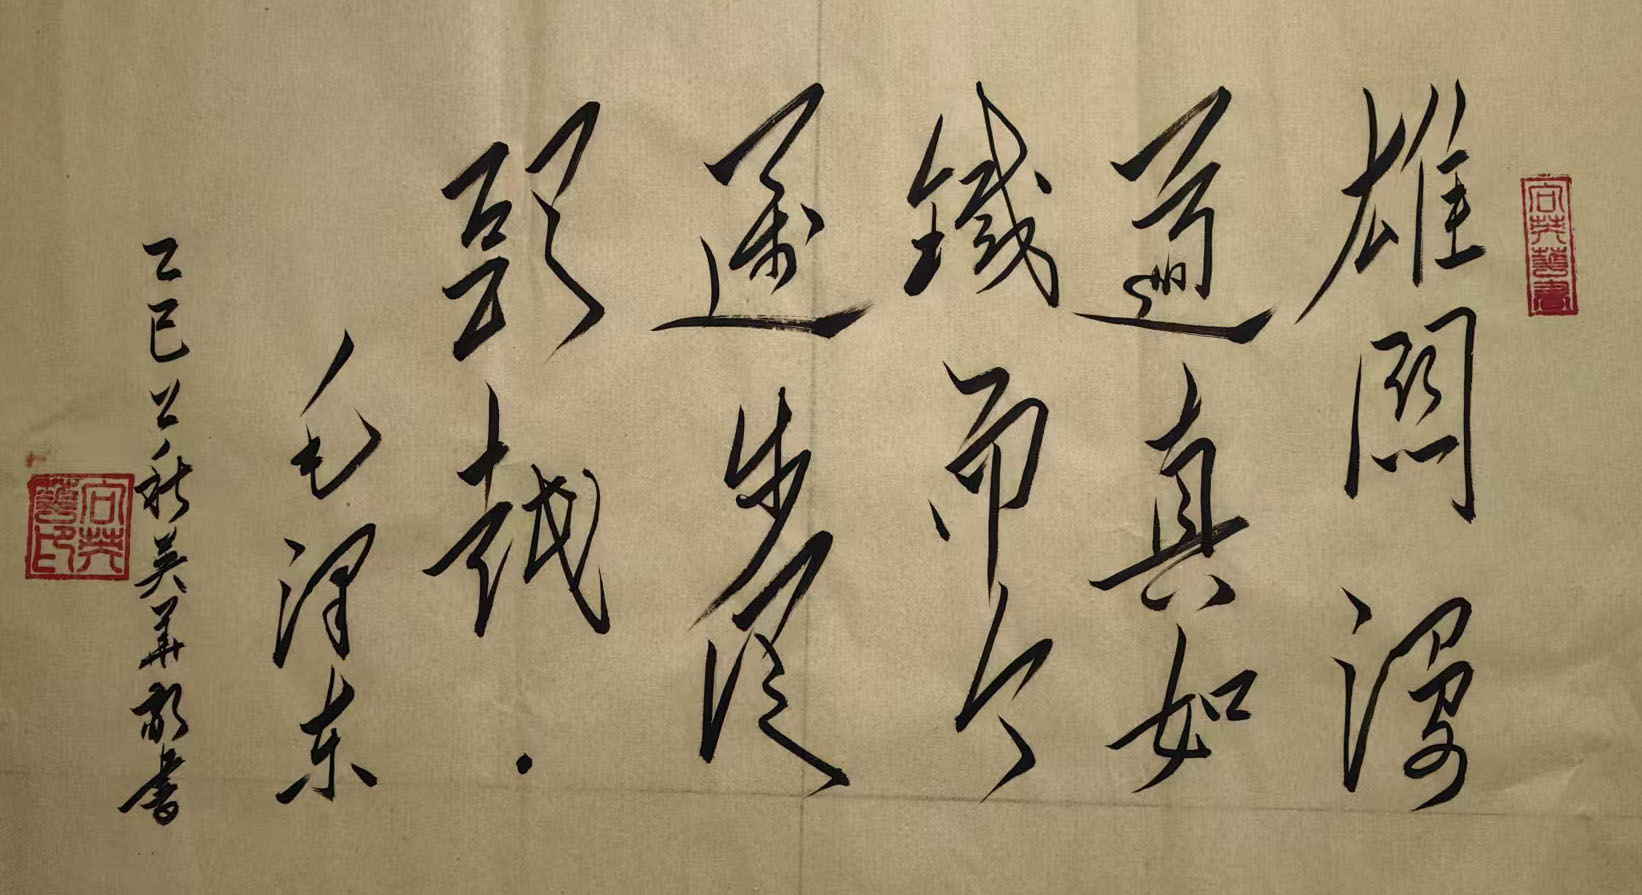 雄關漫
道真如
鐵而今
邁步從
頭越.
毛澤东
乙巳之秋英華敬書